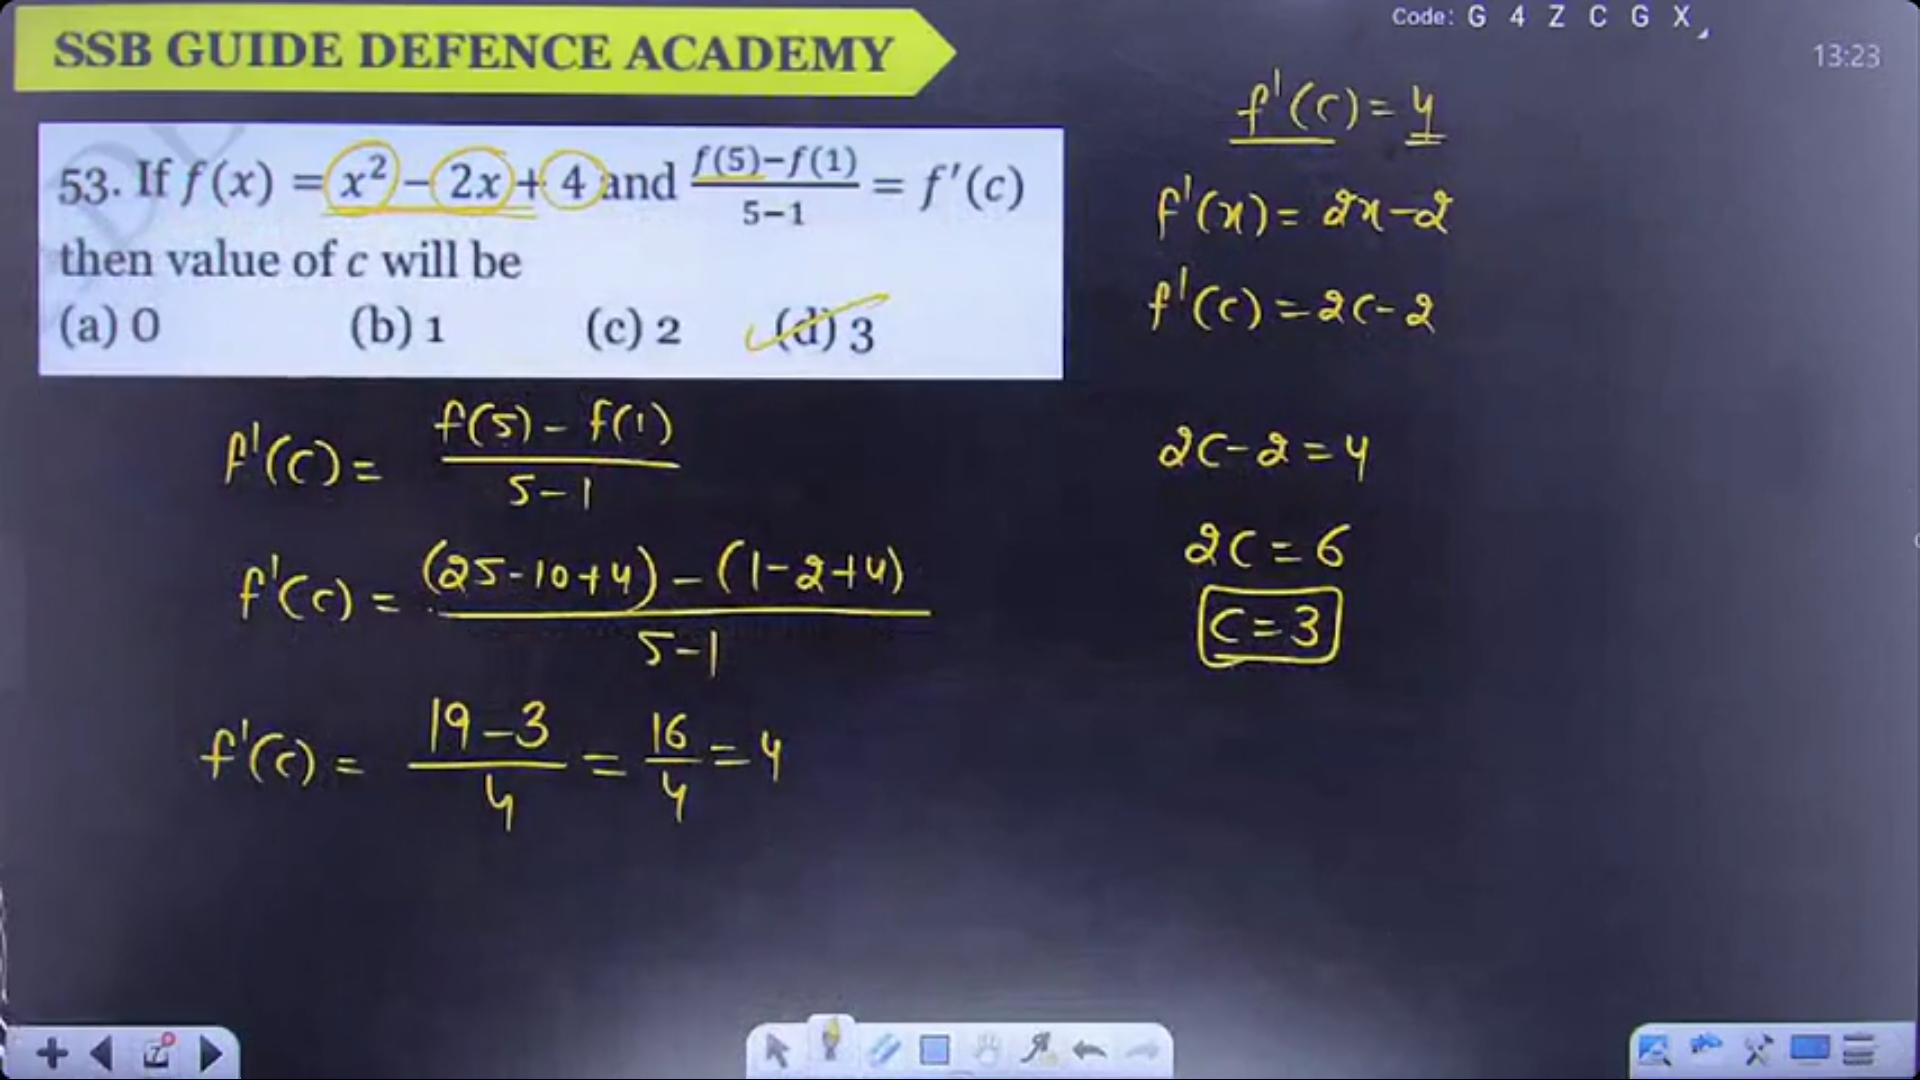 Code: G 4 Z C G X
SSB GUIDE DEFENCE ACADEMY
13:23
53. If f(x) = x² − 2x + 4 and f(5)−f(1)/5−1 = f′(c)
then value of c will be
(a) 0 (b) 1 (c) 2 (d) 3
f'(c) = f(5) - f(1)/5-1
f'(c) = (25-10+4) - (1-2+4)/5-1
f'(c) = 19-3/4 = 16/4 = 4
f'(c) = 4
f'(x) = 2x-2
f'(c) = 2c-2
2c-2 = 4
2c = 6
c = 3